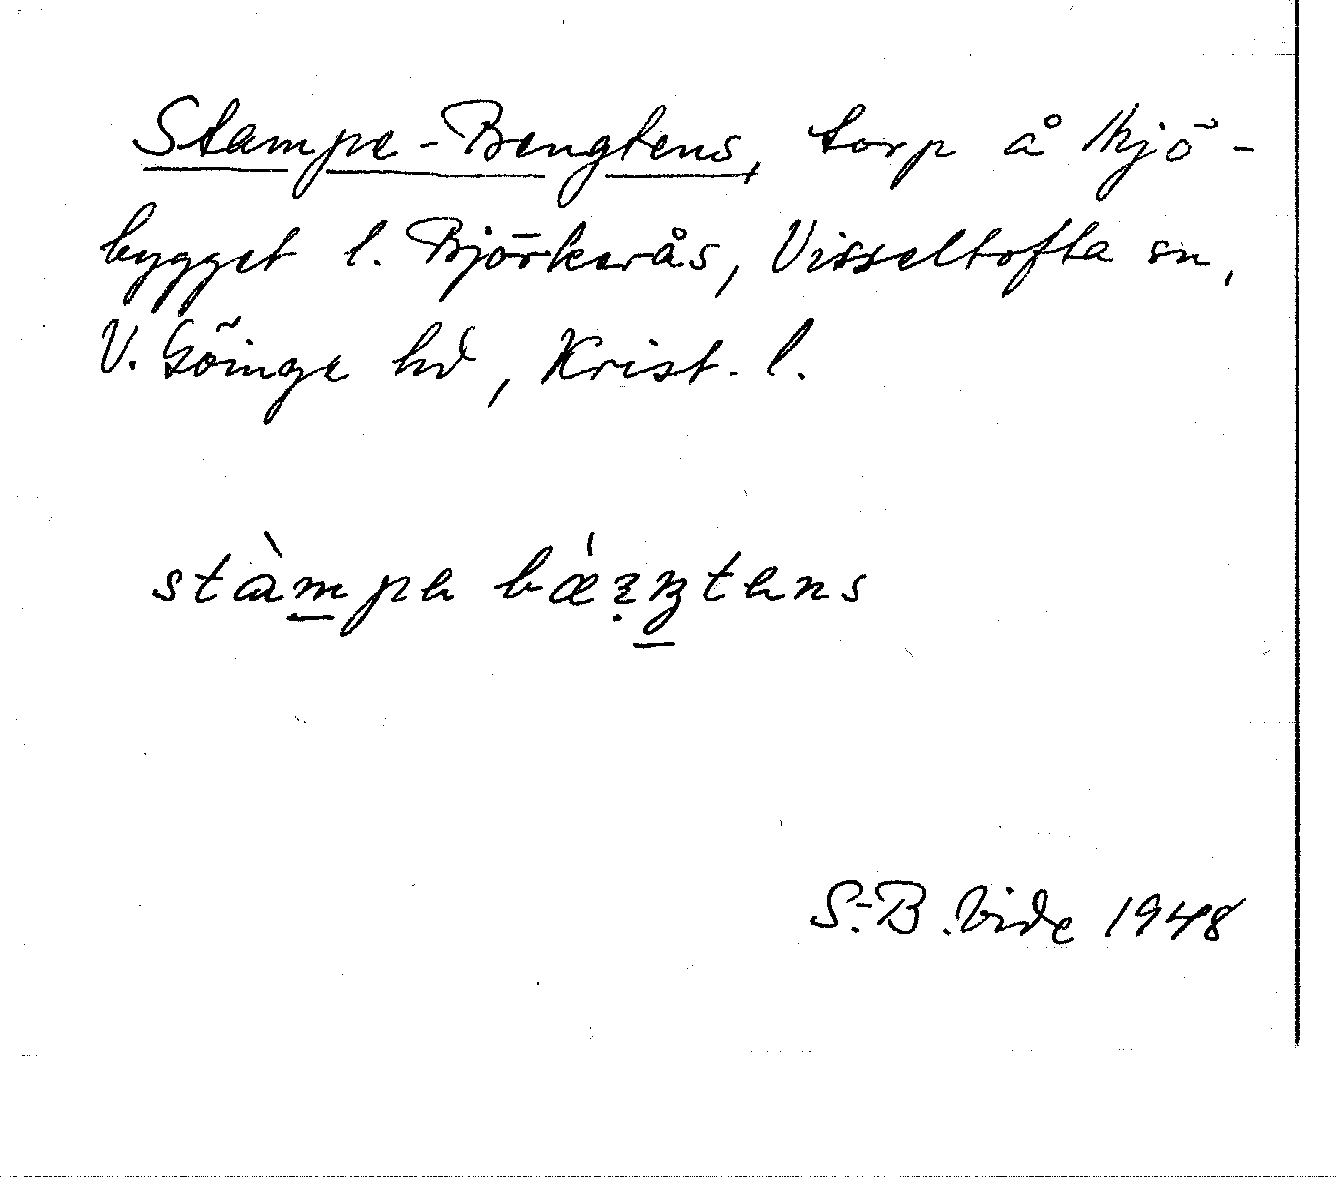 Stampe-Bengtens, torp å Mjö-
bygget l. Björkerås, Visseltofta sn,
V. Göinge hd, Krist. l.
stàmpa
S.-B. Vide 1948